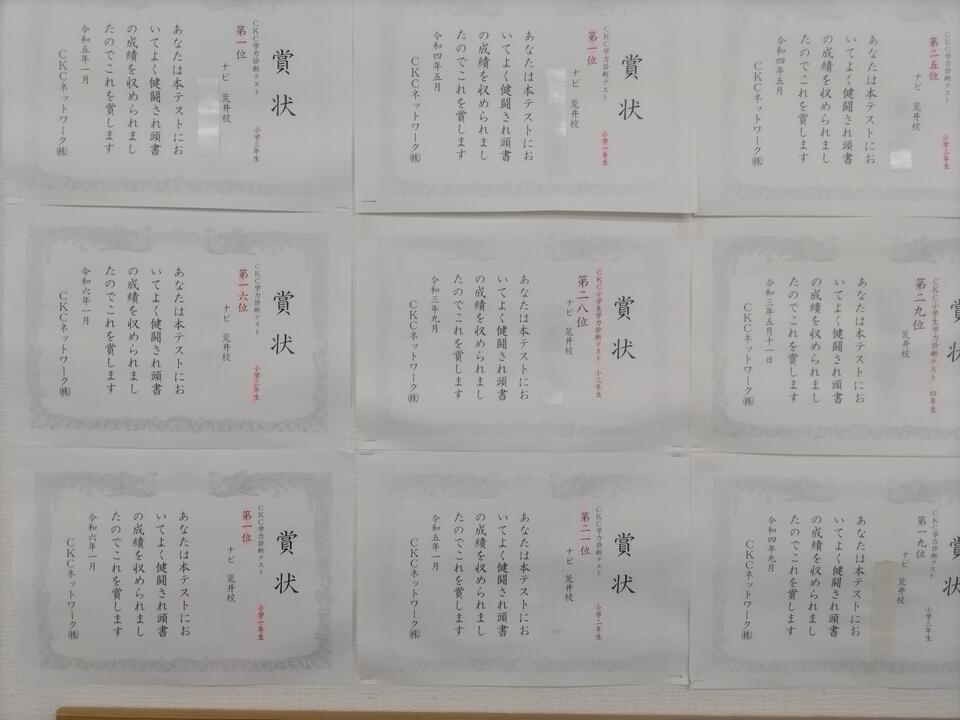 賞状
CKC学力診断テスト 小学三年生
第一位
ナビ 荒井校
あなたは本テストにお
いてよく健闘され頭書
の成績を収められまし
たのでこれを賞します
令和五年一月
CKCネットワーク㈱
賞状
CKC学力診断テスト 小学一年生
第一位
ナビ 荒井校
あなたは本テストにお
いてよく健闘され頭書
の成績を収められまし
たのでこれを賞します
令和四年五月
CKCネットワーク㈱
CKC学力診断テスト 小学二年生
第二五位
ナビ 荒井校
あなたは本テストにお
いてよく健闘され頭書
の成績を収められまし
たのでこれを賞します
令和四年五月
CKCネットワーク㈱
賞状
CKC学力診断テスト 小学三年生
第一六位
ナビ 荒井校
あなたは本テストにお
いてよく健闘され頭書
の成績を収められまし
たのでこれを賞します
令和六年一月
CKCネットワーク㈱
賞状
CKC小学生学力診断テスト 小三年生
第二八位
ナビ 荒井校
あなたは本テストにお
いてよく健闘され頭書
の成績を収められまし
たのでこれを賞します
令和三年九月
CKCネットワーク㈱
賞状
CKC小学生学力診断テスト 四年生
第二九位
荒井校
あなたは本テストにお
いてよく健闘され頭書
の成績を収められまし
たのでこれを賞します
令和三年五月十一日
CKCネットワーク㈱
賞状
CKC学力診断テスト 小学一年生
第一位
ナビ 荒井校
あなたは本テストにお
いてよく健闘され頭書
の成績を収められまし
たのでこれを賞します
令和六年一月
CKCネットワーク㈱
賞状
CKC学力診断テスト 小学二年生
第二一位
ナビ 荒井校
あなたは本テストにお
いてよく健闘され頭書
の成績を収められまし
たのでこれを賞します
令和五年一月
CKCネットワーク㈱
CKC学力診断テスト 小学三年生
第一九位
ナビ 荒井校
あなたは本テストにお
いてよく健闘され頭書
の成績を収められまし
たのでこれを賞します
令和四年九月
CKCネットワーク㈱